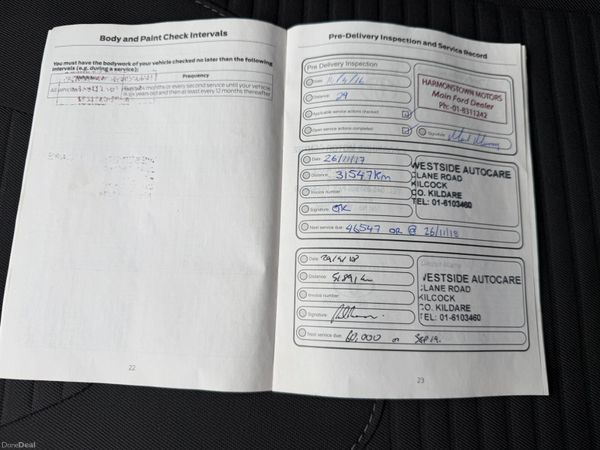 Body and Paint Check Intervals
You must have the bodywork of your vehicle checked no later than the following
intervals (e.g. during a service):
Frequency
months or every second service until your vehicle
is six years old and then at least every 12 months thereafter
22
Pre-Delivery Inspection and Service Record
Pre Delivery Inspection
Date
Distance 29
Applicable service actions checked
Open service actions completed
Signature
HARMONSTOWN MOTORS
Main Ford Dealer
Ph:-01-8311242
Date 26/11/17
Distance 31547km
Invoice number
Signature
Next service due 46547 OR @ 26/11/18
WESTSIDE AUTOCARE
CLANE ROAD
KILCOCK
CO. KILDARE
TEL: 01-6103460
Date
Distance
Invoice number
Signature
Next service due 60,000 or Sep 19.
VESTSIDE AUTOCARE
CLANE ROAD
KILCOCK
CO. KILDARE
TEL: 01-6103460
23
DoneDeal